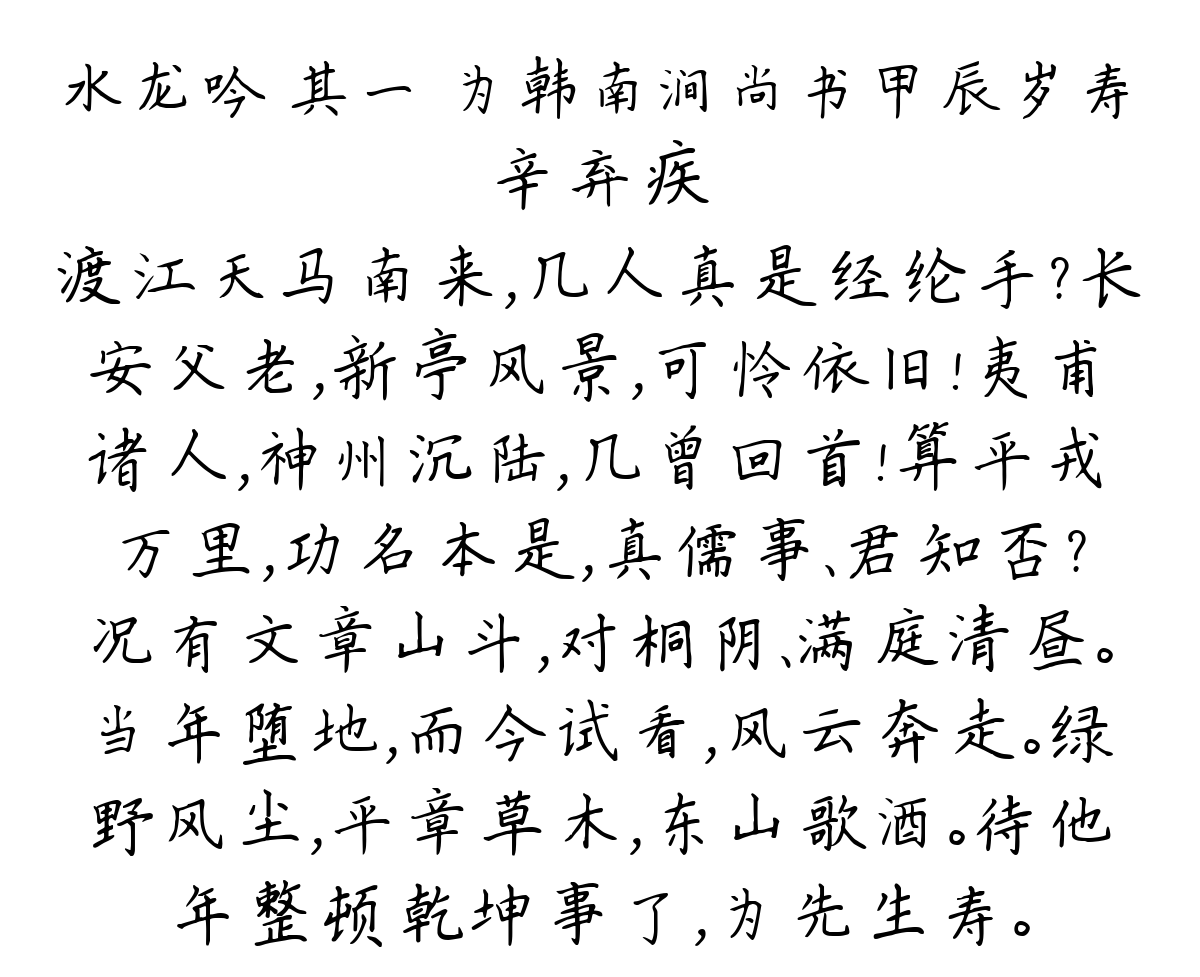 水龙吟 其一 为韩南涧尚书甲辰岁寿
辛弃疾
渡江天马南来,几人真是经纶手?长
安父老,新亭风景,可怜依旧!夷甫
诸人,神州沉陆,几曾回首!算平戎
万里,功名本是,真儒事、君知否?
况有文章山斗,对桐阴、满庭清昼。
当年堕地,而今试看,风云奔走。绿
野风尘,平章草木,东山歌酒。待他
年整顿乾坤事了,为先生寿。